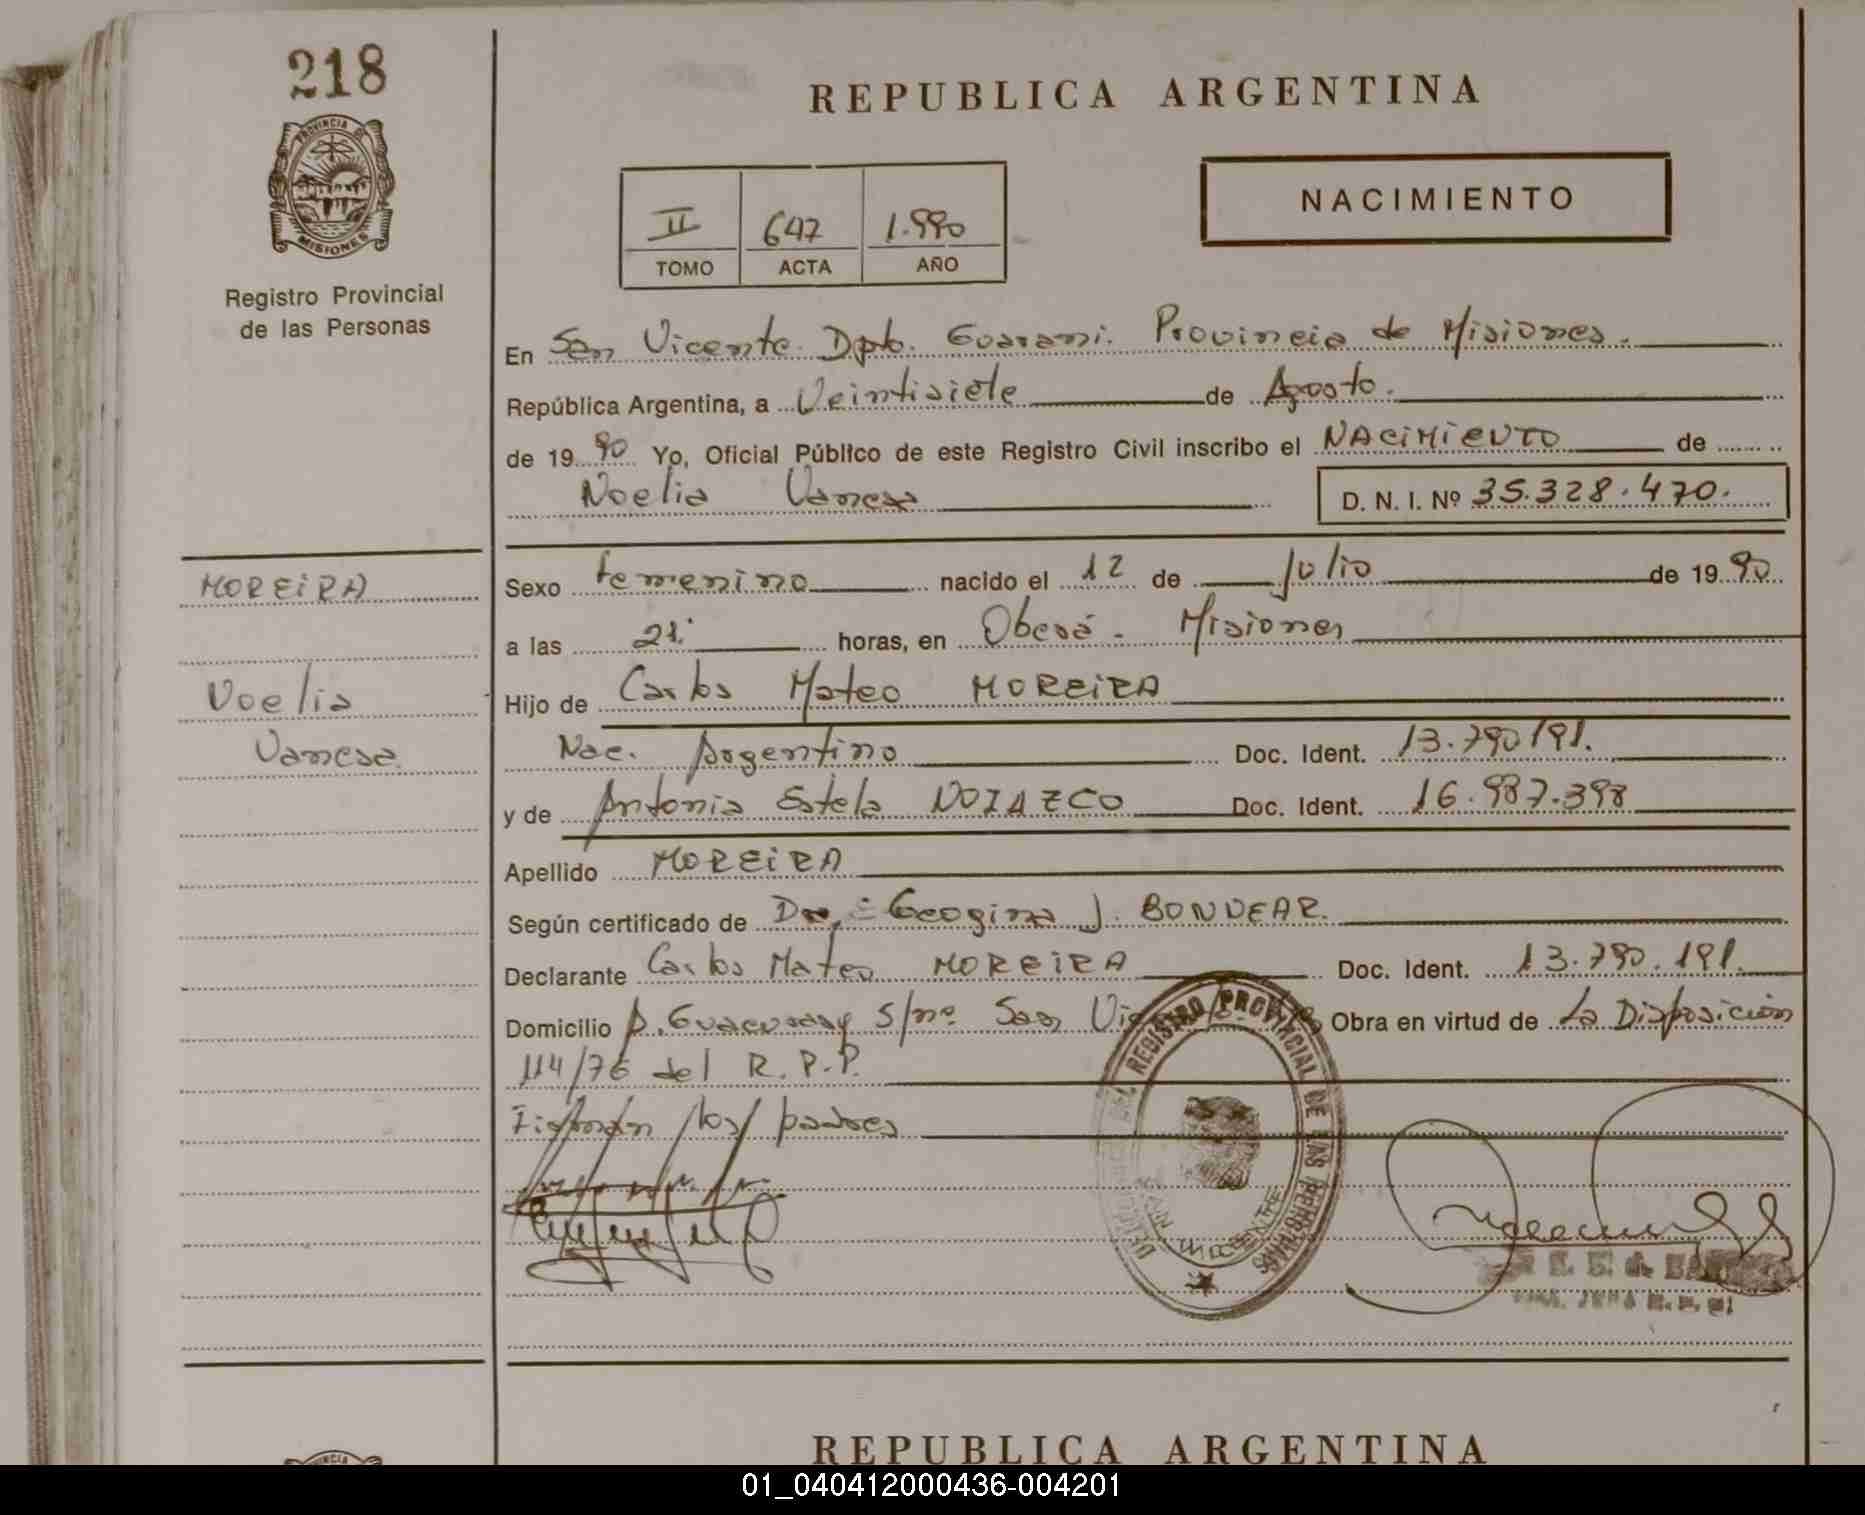 218
PROVINCIA DE
MISIONES
Registro Provincial
de las Personas
REPUBLICA ARGENTINA
NACIMIENTO
II 647 1.990
TOMO ACTA AÑO
En San Vicente. Dpto. Guarani. Provincia de Misiones.
República Argentina, a Veintisiete de Agosto.
de 19 90 Yo, Oficial Público de este Registro Civil inscribo el NACIMIENTO de
Noelia Vanesa D. N. I. Nº 35.328.470.
MOREIRA
Noelia
Vanesa
Sexo femenino nacido el 12 de Julio de 19 90
a las 21. horas, en Oberá - Misiones
Hijo de Carlos Mateo MOREIRA
Nac. Argentino Doc. Ident. 13.790191.
y de Antonia Estela Doc. Ident. 16.987.398
Apellido MOREIRA
Según certificado de Georgina J. BONNEAR.
Declarante Carlos Mateo MOREIRA Doc. Ident. 13.790.191.
Domicilio A. Guacurary s/nº San Obra en virtud de La Disposición
114/76 del R.P.P.
Firman los padres
REGISTRO PROVINCIAL DE LAS PERSONAS
SAN VICENTE
REPUBLICA ARGENTINA
01_040412000436-004201